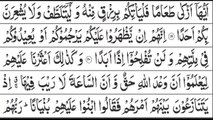 اَيُّهَاۤ اَزْكٰى طَعَامًا فَلْيَاْتِكُمْ بِرِزْقٍ مِّنْهُ وَلْيَتَلَطَّفْ وَلَا يُشْعِرَنَّ
بِكُمْ اَحَدًا ۞ اِنَّهُمْ اِنْ يَّظْهَرُوْا عَلَيْكُمْ يَرْجُمُوْكُمْ اَوْ يُعِيْدُوْكُمْ
فِىْ مِلَّتِهِمْ وَلَنْ تُفْلِحُوْۤا اِذًا اَبَدًا ۞ وَكَذٰلِكَ اَعْثَرْنَا عَلَيْهِمْ
لِيَعْلَمُوْۤا اَنَّ وَعْدَ اللّٰهِ حَقٌّ وَّ اَنَّ السَّاعَةَ لَا رَيْبَ فِيْهَا ۚ اِذْ
يَتَنَازَعُوْنَ بَيْنَهُمْ اَمْرَهُمْ فَقَالُوا ابْنُوْا عَلَيْهِمْ بُنْيَانًا ؕ رَبُّهُمْ